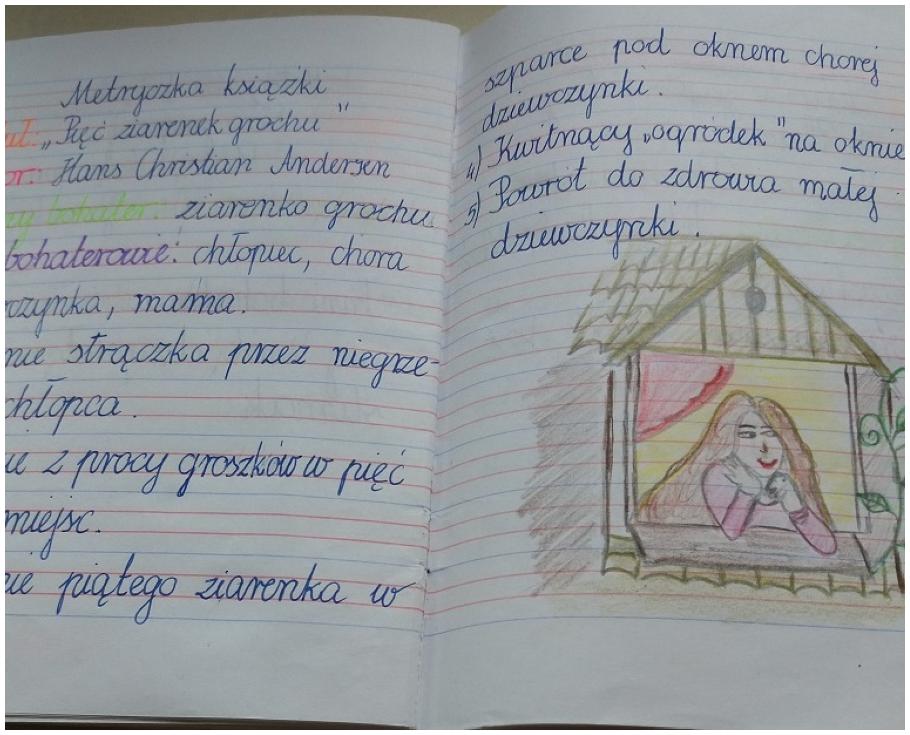 Metryczka książki
uł: „Pięć ziarenek grochu"
or: Hans Christian Andersen
ny bohater: ziarenko grochu
bohaterowie: chłopiec, chora
czynka, mama.
nie strączka przez niegrze-
chłopca.
ie z procy groszków w pięć
miejsc.
ie piątego ziarenka w
szparce pod oknem chorej
dziewczynki.
4) Kwitnący „ogródek" na oknie
5) Powrót do zdrowia małej
dziewczynki.